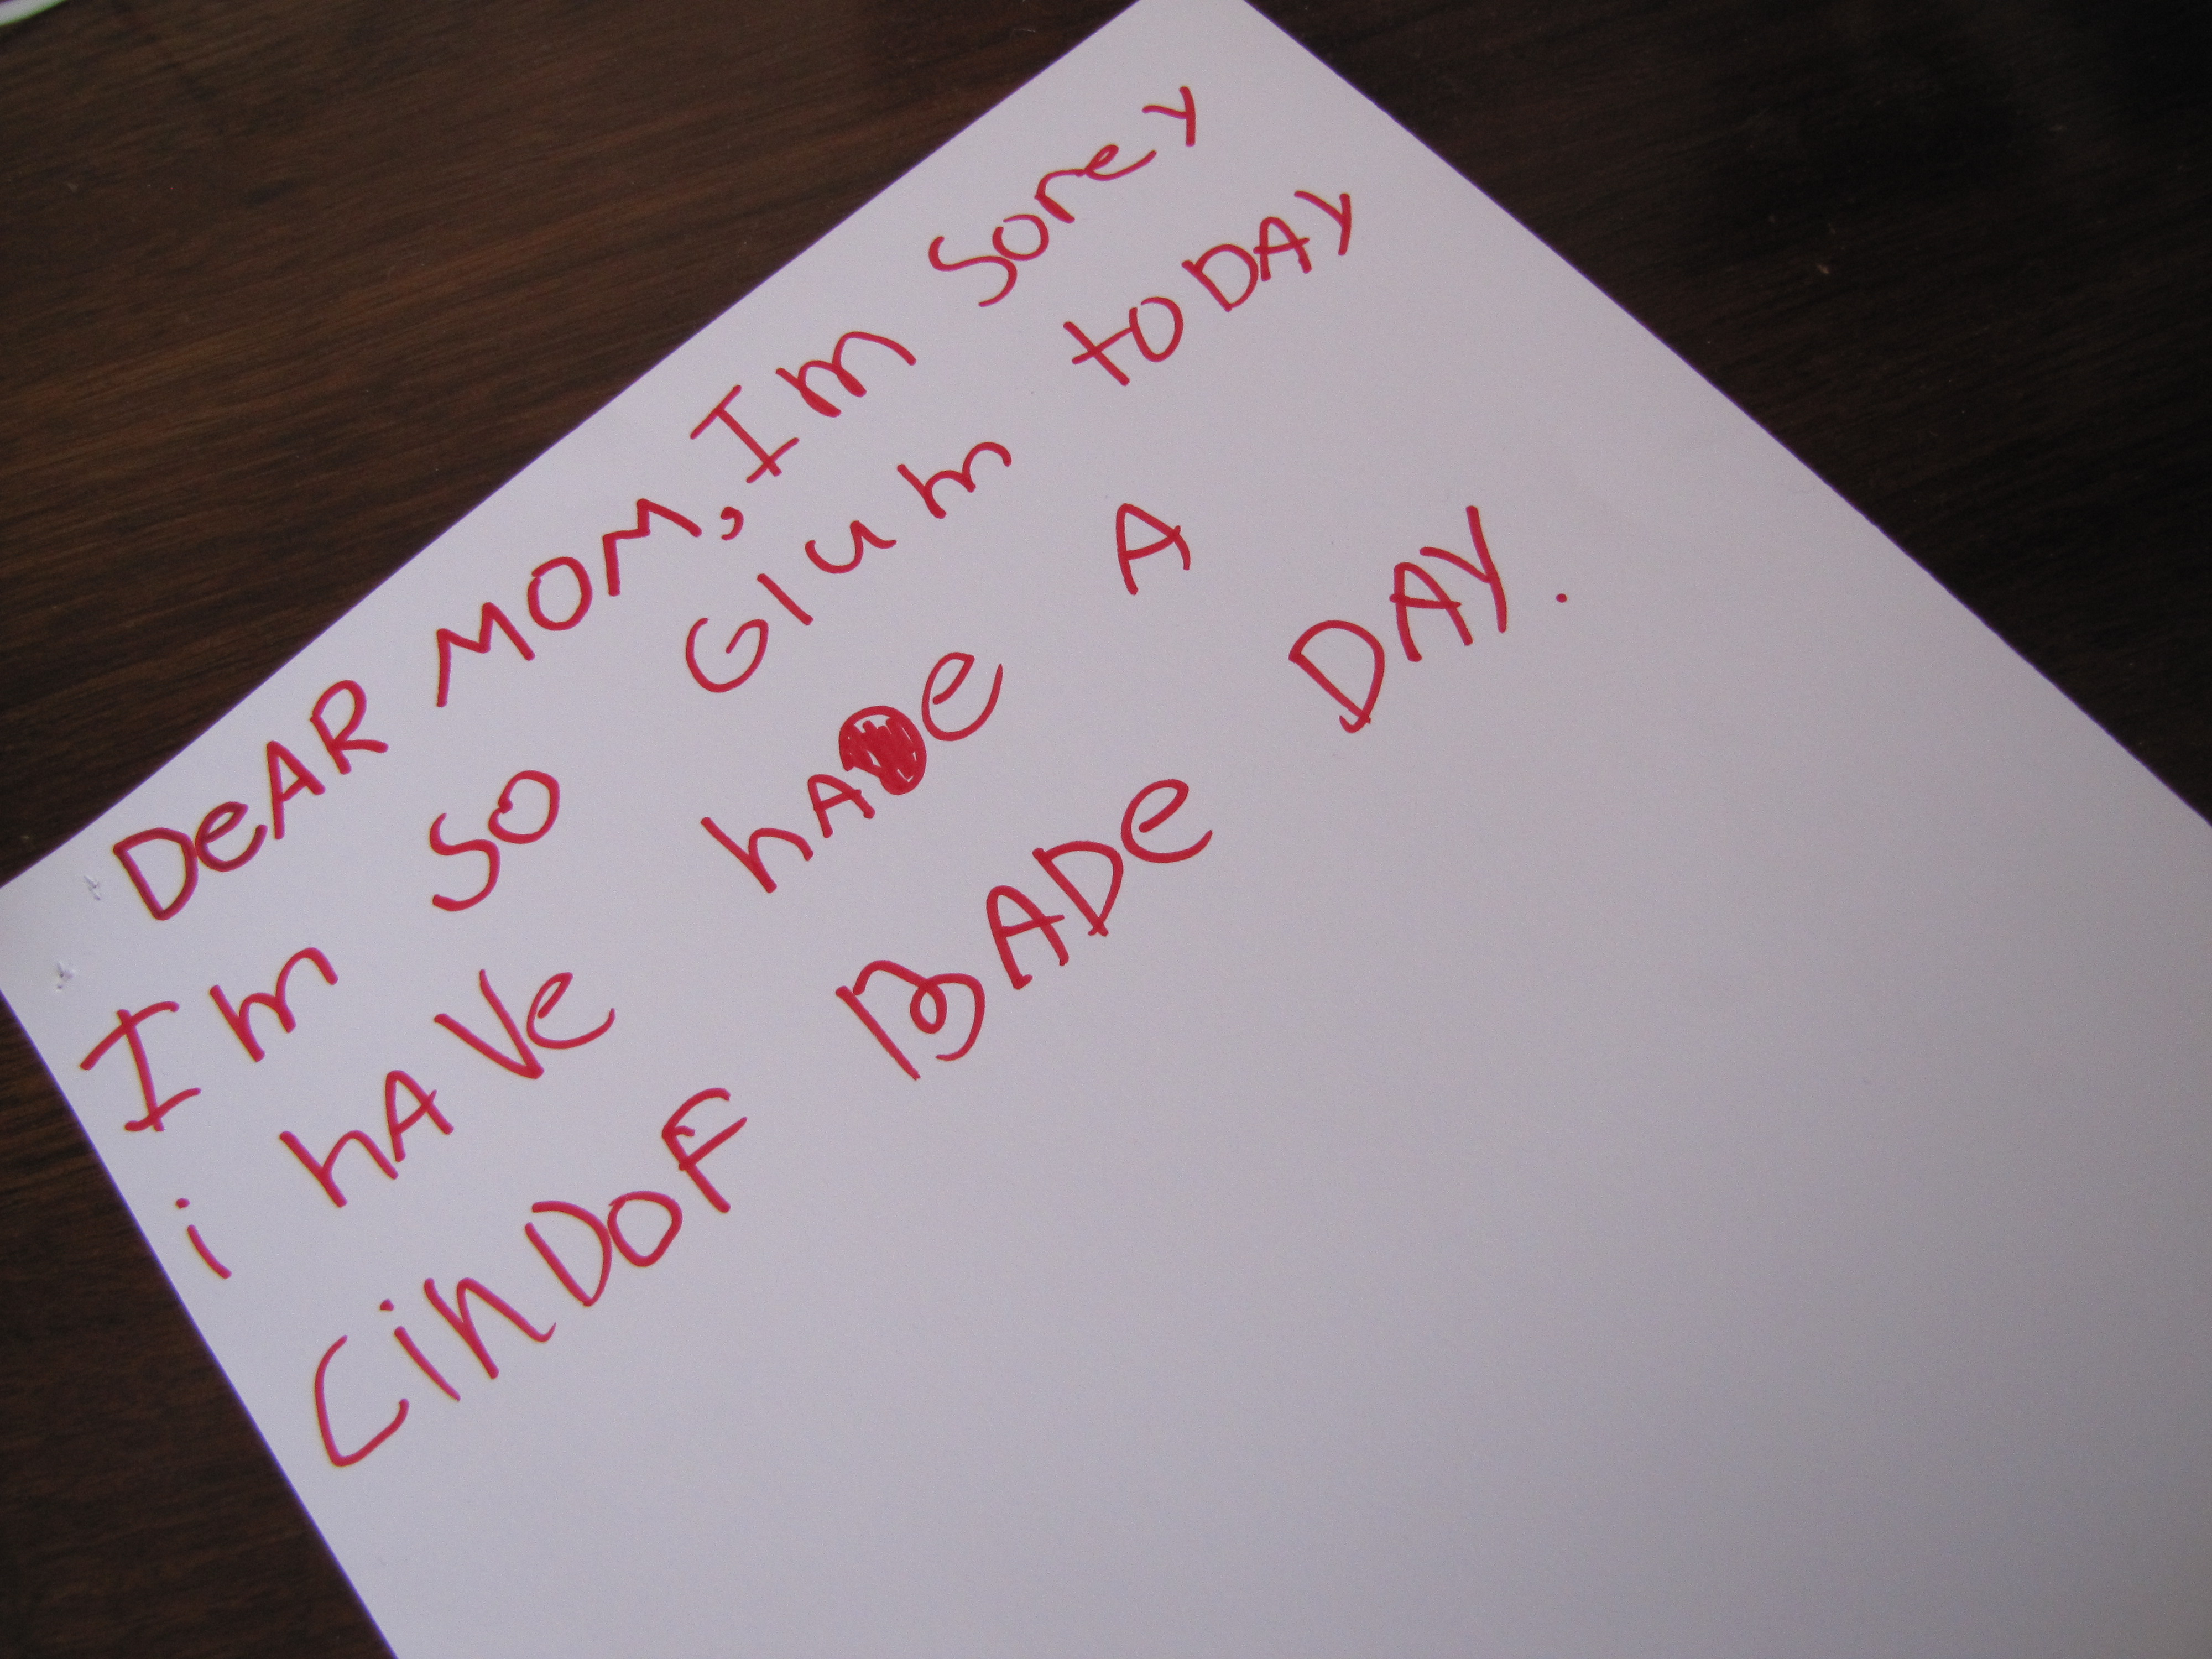 DeAR MOM, Im Sorey
Im so Glum toDAY
i hAVe hADe A
CinDoF BADe DAY.